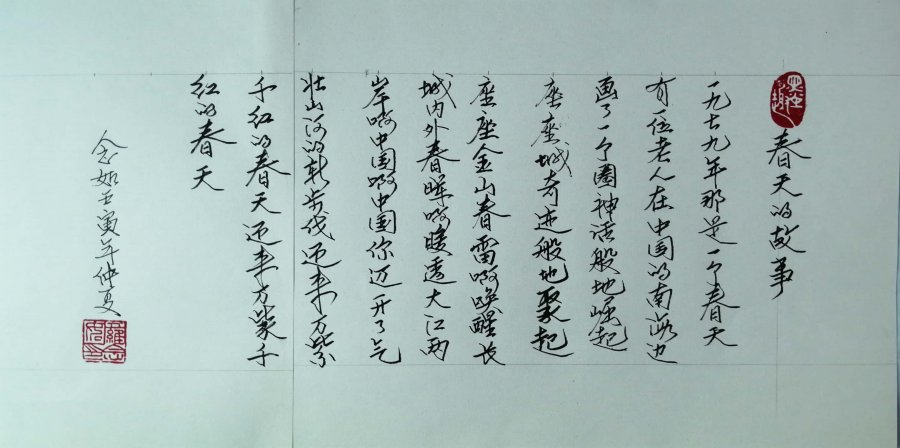 春天的故事
一九七九年那是一个春天
有一位老人在中国的南海边
画了一个圈神话般地崛起
座座城奇迹般地聚起
座座金山春雷啊唤醒长
城内外春晖啊暖透大江两
岸啊中国啊中国你迈开了气
壮山河的新步伐迎来万紫
千红的春天迎来万紫千
红的春天
念如壬寅年仲夏